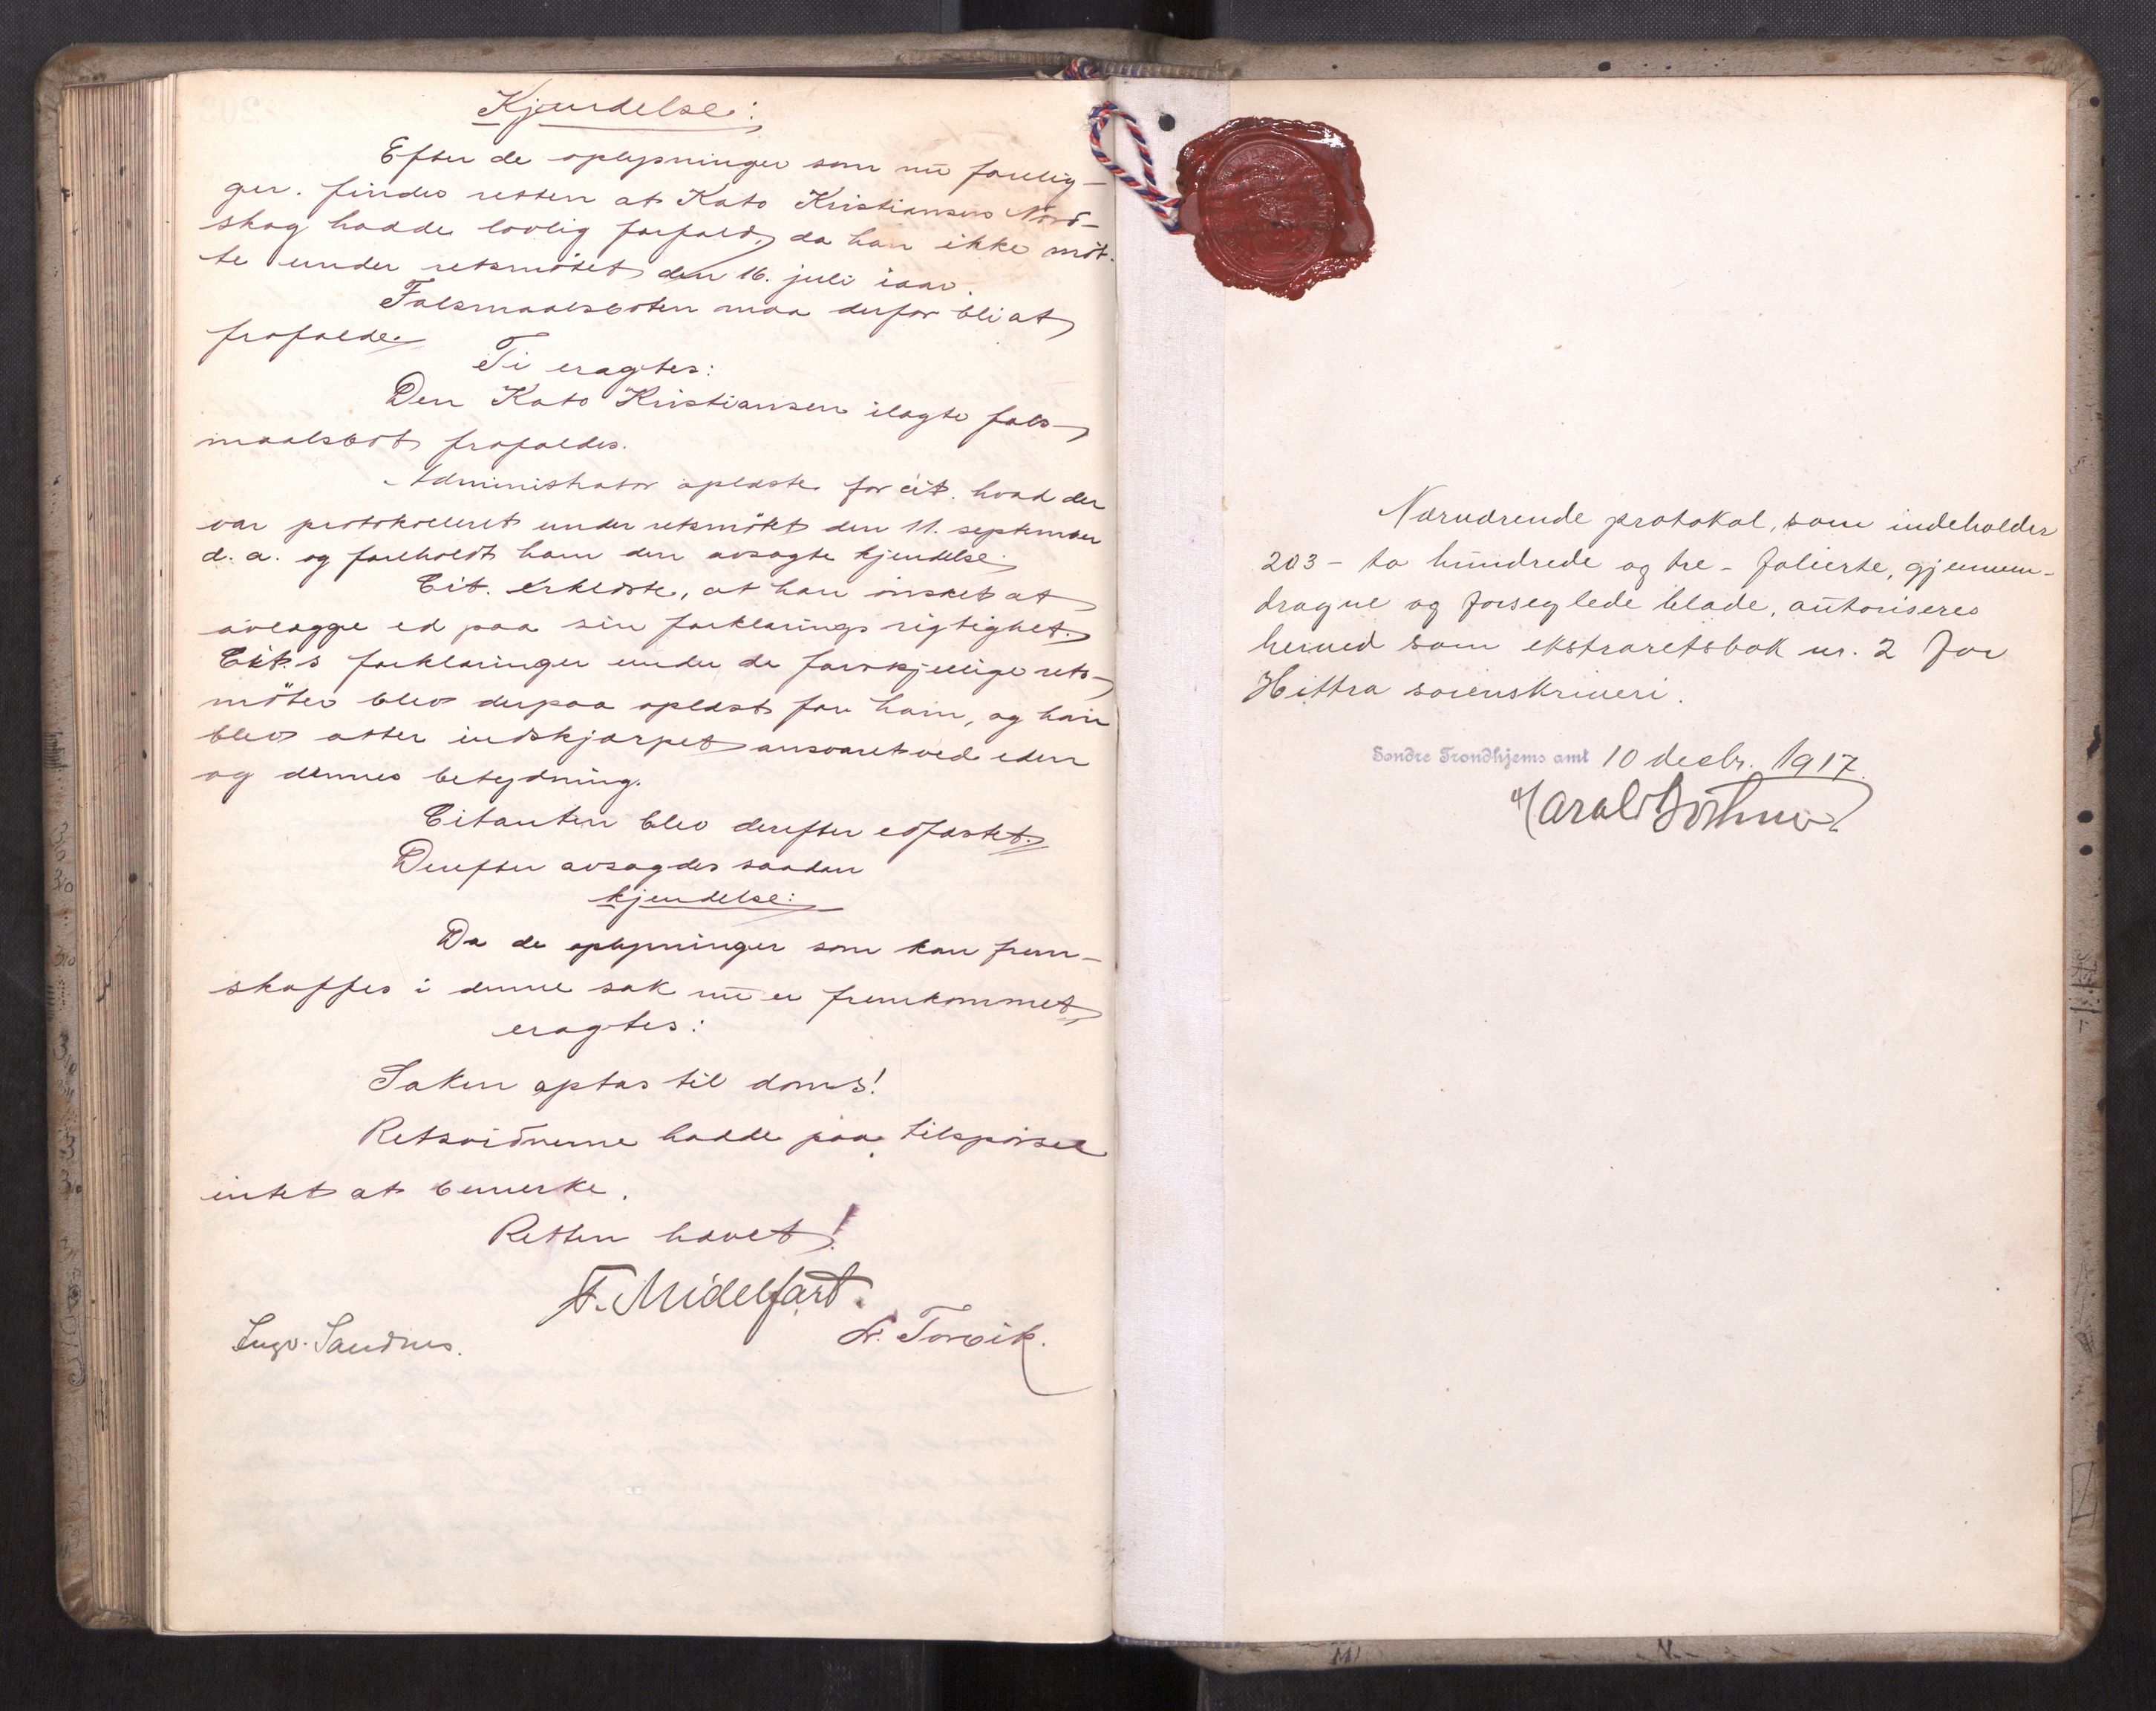 Kjændelse:
Efter de oplysninger som nu forelig-
ger. findes retten at Kato Kristiansen Nord-
skag hadde lovlig forfald, da han ikke möt-
te under retsmötet den 16. juli iaar.
Falsmaalsboten maa derfor bli at
frafalde.
Ti eragtes:
Den Kato Kristiansen ilagte fals-
maalsbot frafaldes.
Administrator oplæste for cit. hvad der
var protokolleret under retsmötet den 11. september
d. a. og foreholdt ham den avsagte kjendelse.
Cit. erklærte, at han önsket at
avlægge ed paa sin forklarings rigtighet.
Cit.s forklaringer under de forskjellige rets-
möter blev derpaa oplæst for ham, og han
blev atter indskjærpet ansvaret ved eden
og dennes betydning.
Citanten blev derefter edfæstet.
Derefter avsagdes saadan
kjendelse:
Da de oplysninger som kan frem-
skaffes i denne sak nu er fremkommet,
eragtes:
Saken optas til doms!
Retsvidnerne hadde paa tilspörsel
intet at bemerke.
Retten hævet!
F. Midelfart.
Ingv. Sandnes. Torvik.
Nærværende protokol, som indeholder
203 - to hundrede og tre - folierte, gjennem-
dragne og forseglede blade, autoriseres
herved som ekstraretsbok nr. 2 for
Hittra sorenskriveri.
Søndre Trondhjems amt 10 decbr. 1917.
Harald Bothner